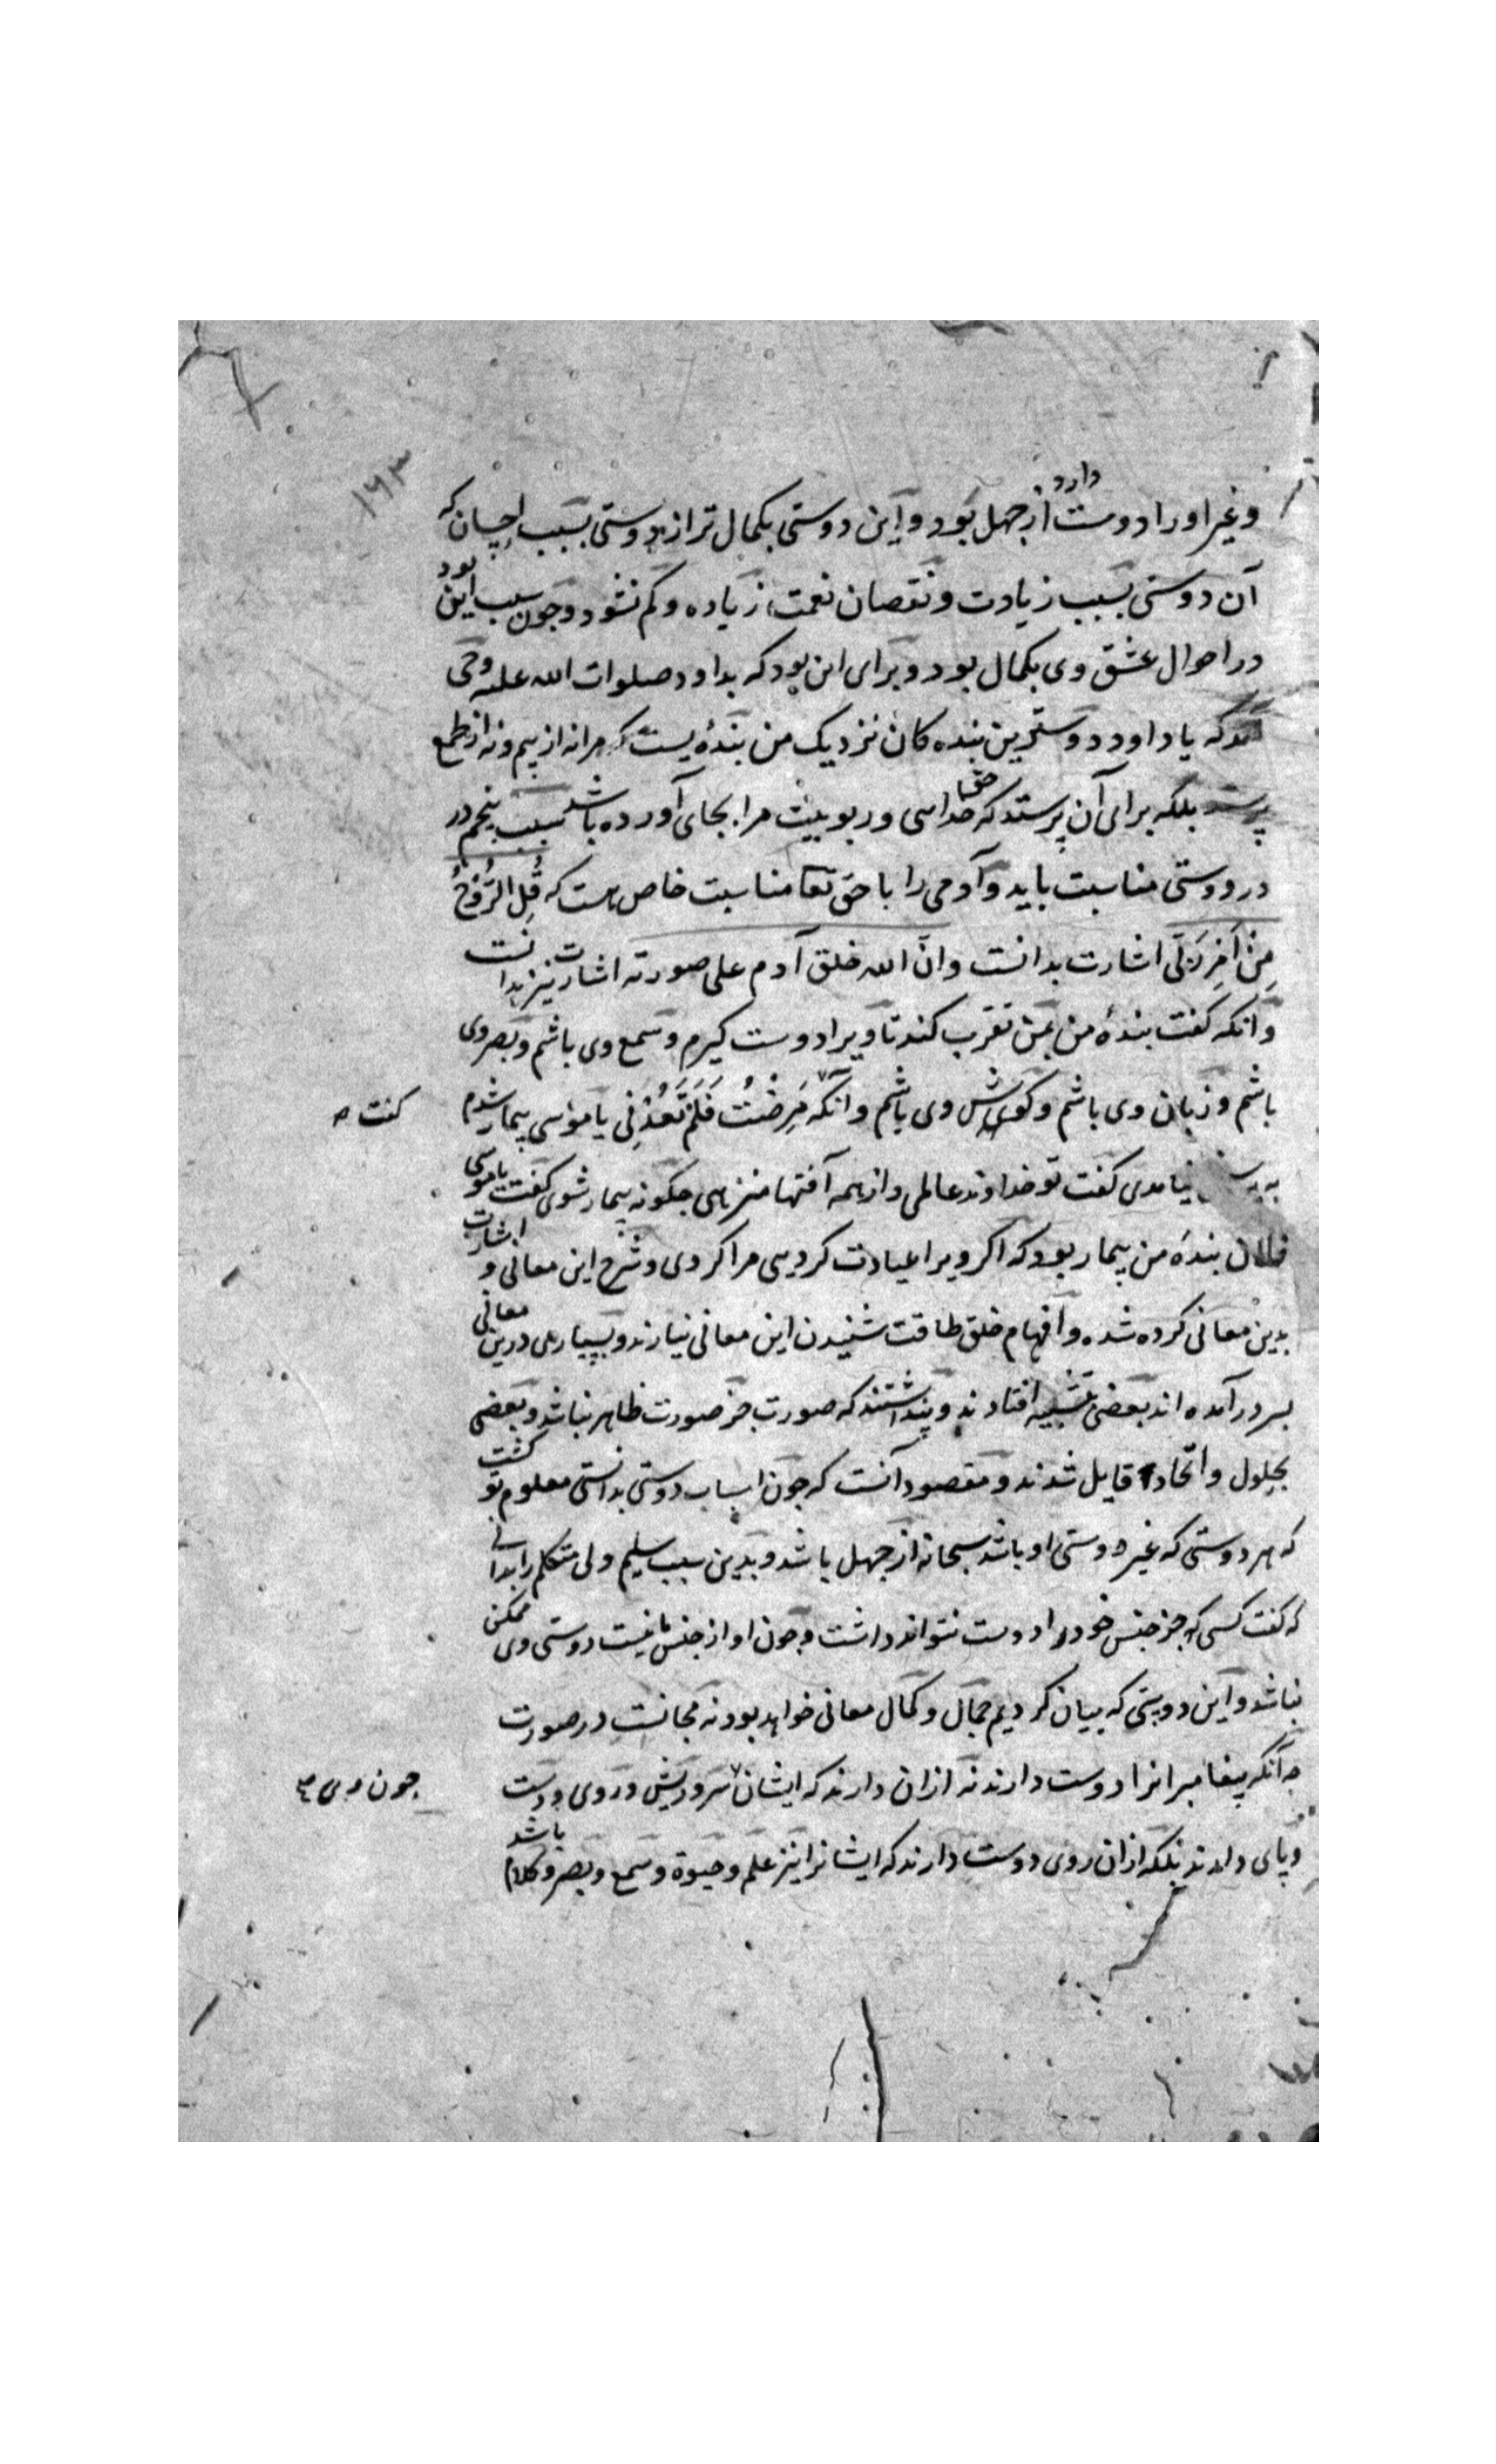 ۱۶۳
وغیر او را دوست دارد از جهل بود و این دوستی بکمال تر از دوستی بسبب احسان که
آن دوستی بسبب زیادت و نقصان نعمت زیاده و کم نشود و چون سبب این بود
در احوال عشق وی بکمال بود و برای این بود که بداود صلوات الله علیه وحی
که یا داود دوسترین بنده کان نزدیک من بندهٔ یست که مرا نه از بیم و نه از طمع
بلکه برای آن پرستد که حق خدایی و ربوبیت مرا بجای آورده باشد سبب پنجم در
در دوستی مناسبت باید و آدمی را با حق تعا مناسبت خاص هست که قُلِ الرُّوحُ
مِنْ اَمْرِ رَبّی اشارت بدانست و انّ الله خلق آدم علی صورته اشارت نیز بدانست
و آنکه کفت بندهٔ من بمن تقرب کند تا ویرا دوست کیرم و سمع وی باشم و بصر وی
باشم و زبان وی باشم و کوش وی باشم و آنکه مَرِضْتُ فَلَمْ تَعُدْنی یا موسی بیمار شدم
کفت
نیامدی کفت تو خداوند عالمی و از همه آفتها منزهی چکونه بیمار شوی کفت یا موسی
فلان بندهٔ من بیمار بود که اکر ویرا عیادت کردیی مرا کردی و شرح این معانی و اشارت
بدین معانی کرده شده و افهام خلق طاقت شنیدن این معانی نیارند و بسیار درین معانی
بسر در آمده اند بعضی بتشبیه افتادند و پنداشتند که صورت جز صورت ظاهر نباشد و بعضی
بحلول و اتحاد قایل شدند و مقصود آنست که چون اسباب دوستی بدانستی معلوم تو کشت
که هر دوستی که غیر دوستی او باشد سبحانه از جهل باشد و بدین سبب سلیم دلی متکلم را بدانی
که کفت کسی که جز جنس خود را دوست نتواند داشت و چون او از جنس ما نیست دوستی وی ممکن
نباشد و این دوستی که بیان کردیم جمال و کمال معانی خواهد بود نه مجانست در صورت
چه آنکه پیغامبرانرا دوست دارند نه از ان دارند که ایشان سر و ریش و روی و دست
چون وی
و پای دارند بلکه از ان روی دوست دارند که ایشانرا نیز علم و حیوة و سمع و بصر و کلام باشد